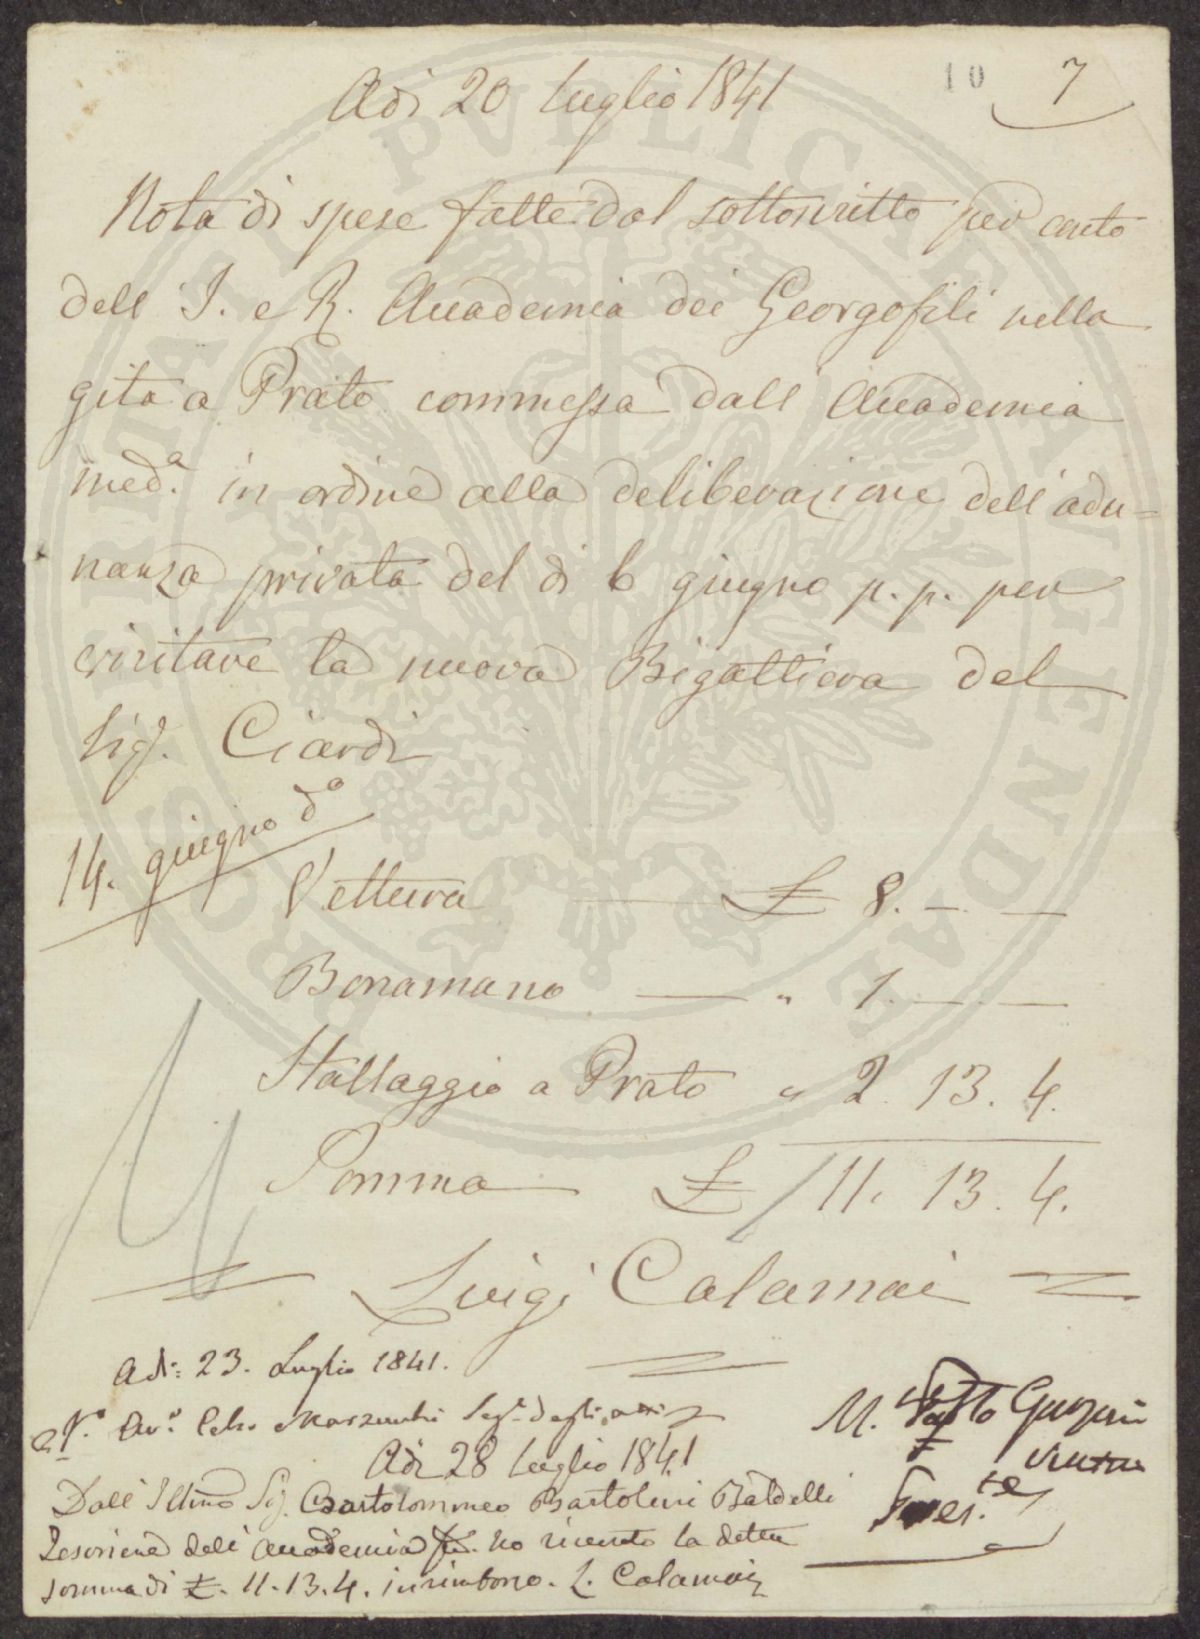 10 7
Adì 20 luglio 1841
Nota di spese fatte dal sottoscritto per conto
dell I. e R. Accademia dei Georgofili nella
gita a Prato commessa dall Accademia
med.a in ordine alla deliberazione dell'adu=
nanza privata del dì 6 giugno p. p. per
visitare la nuova Bigattiera del
Sig. Ciardi
14. giugno d.o
Vettura £ 8. — —
Bonamano — " 1. — —
Stallaggio a Prato " 2. 13. 4.
Somma £ 11. 13. 4.
Luigi Calamai
Adì: 23. Luglio 1841.
V.o Av.o Marzucchi Seg.o degli atti
M.
Adì 28 luglio 1841
Dall'Illmo Sig. Bartolommeo Bartolini Baldelli
Tesoriere dell'Accademia ho ricevuto la detta
somma di £. 11. 13. 4. in rimborso. L. Calamai
PVBLICAE